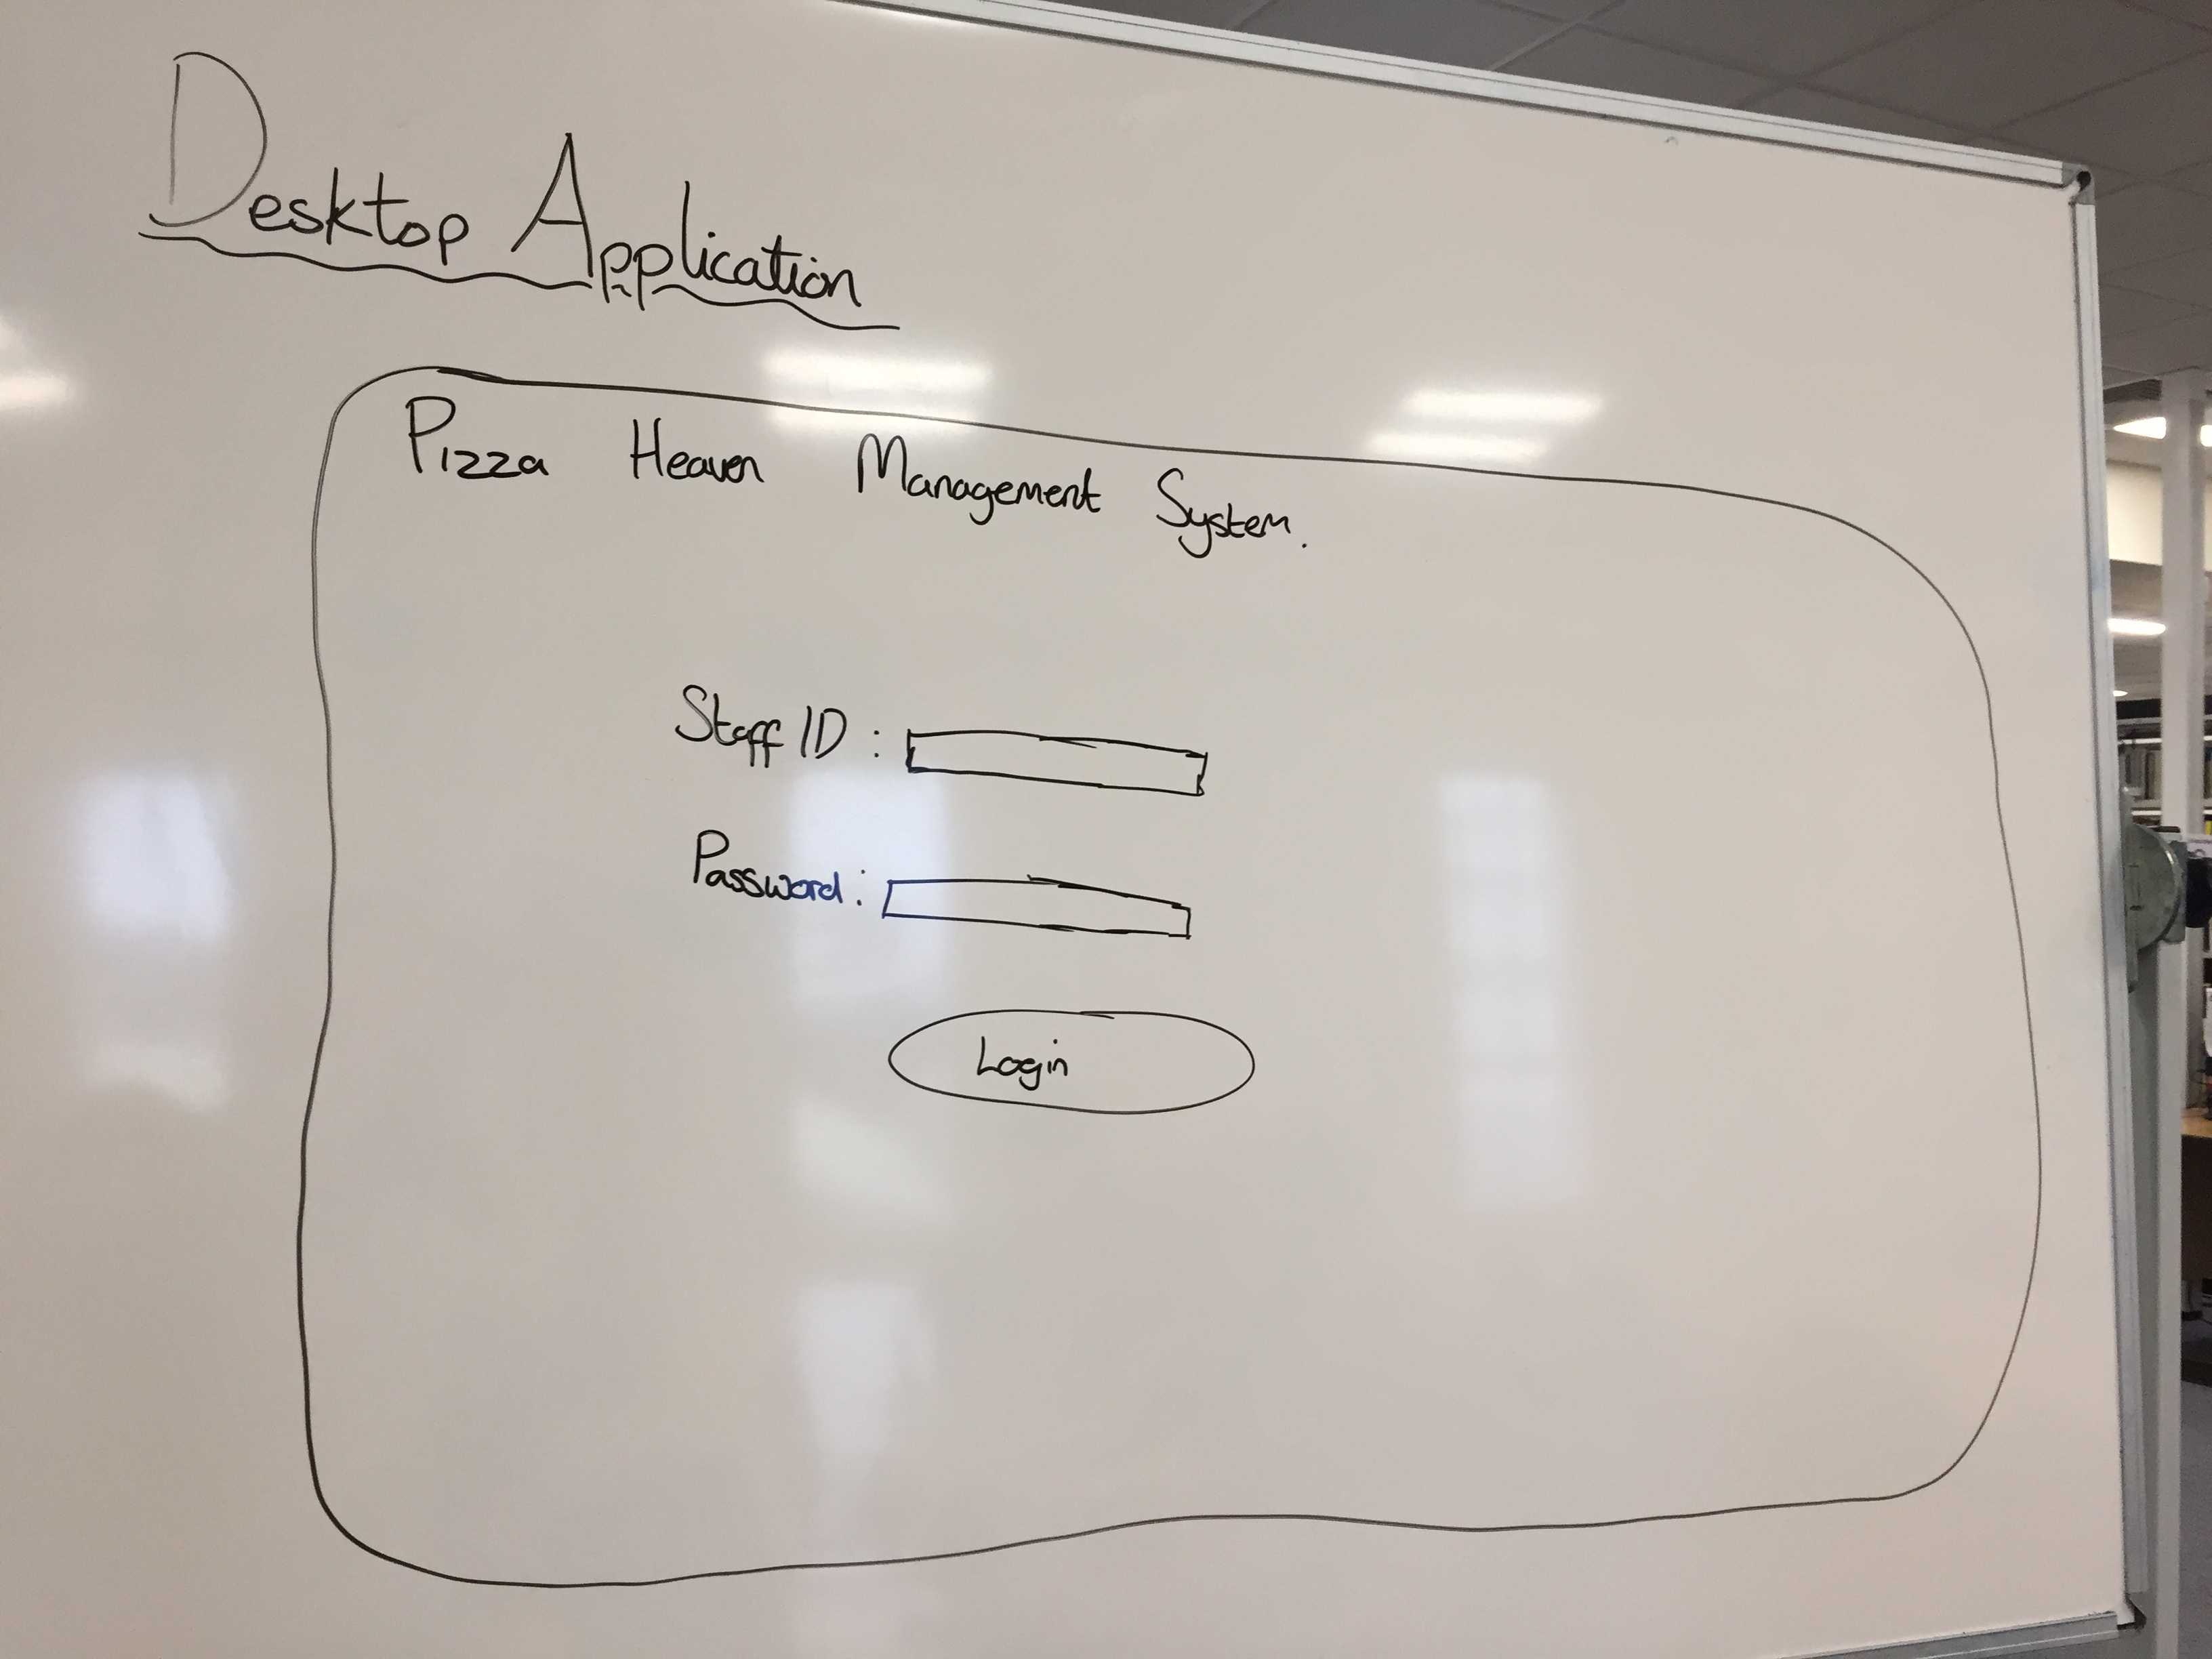 Desktop Application
Pizza Heaven Management System.
Staff ID :
Password :
Login